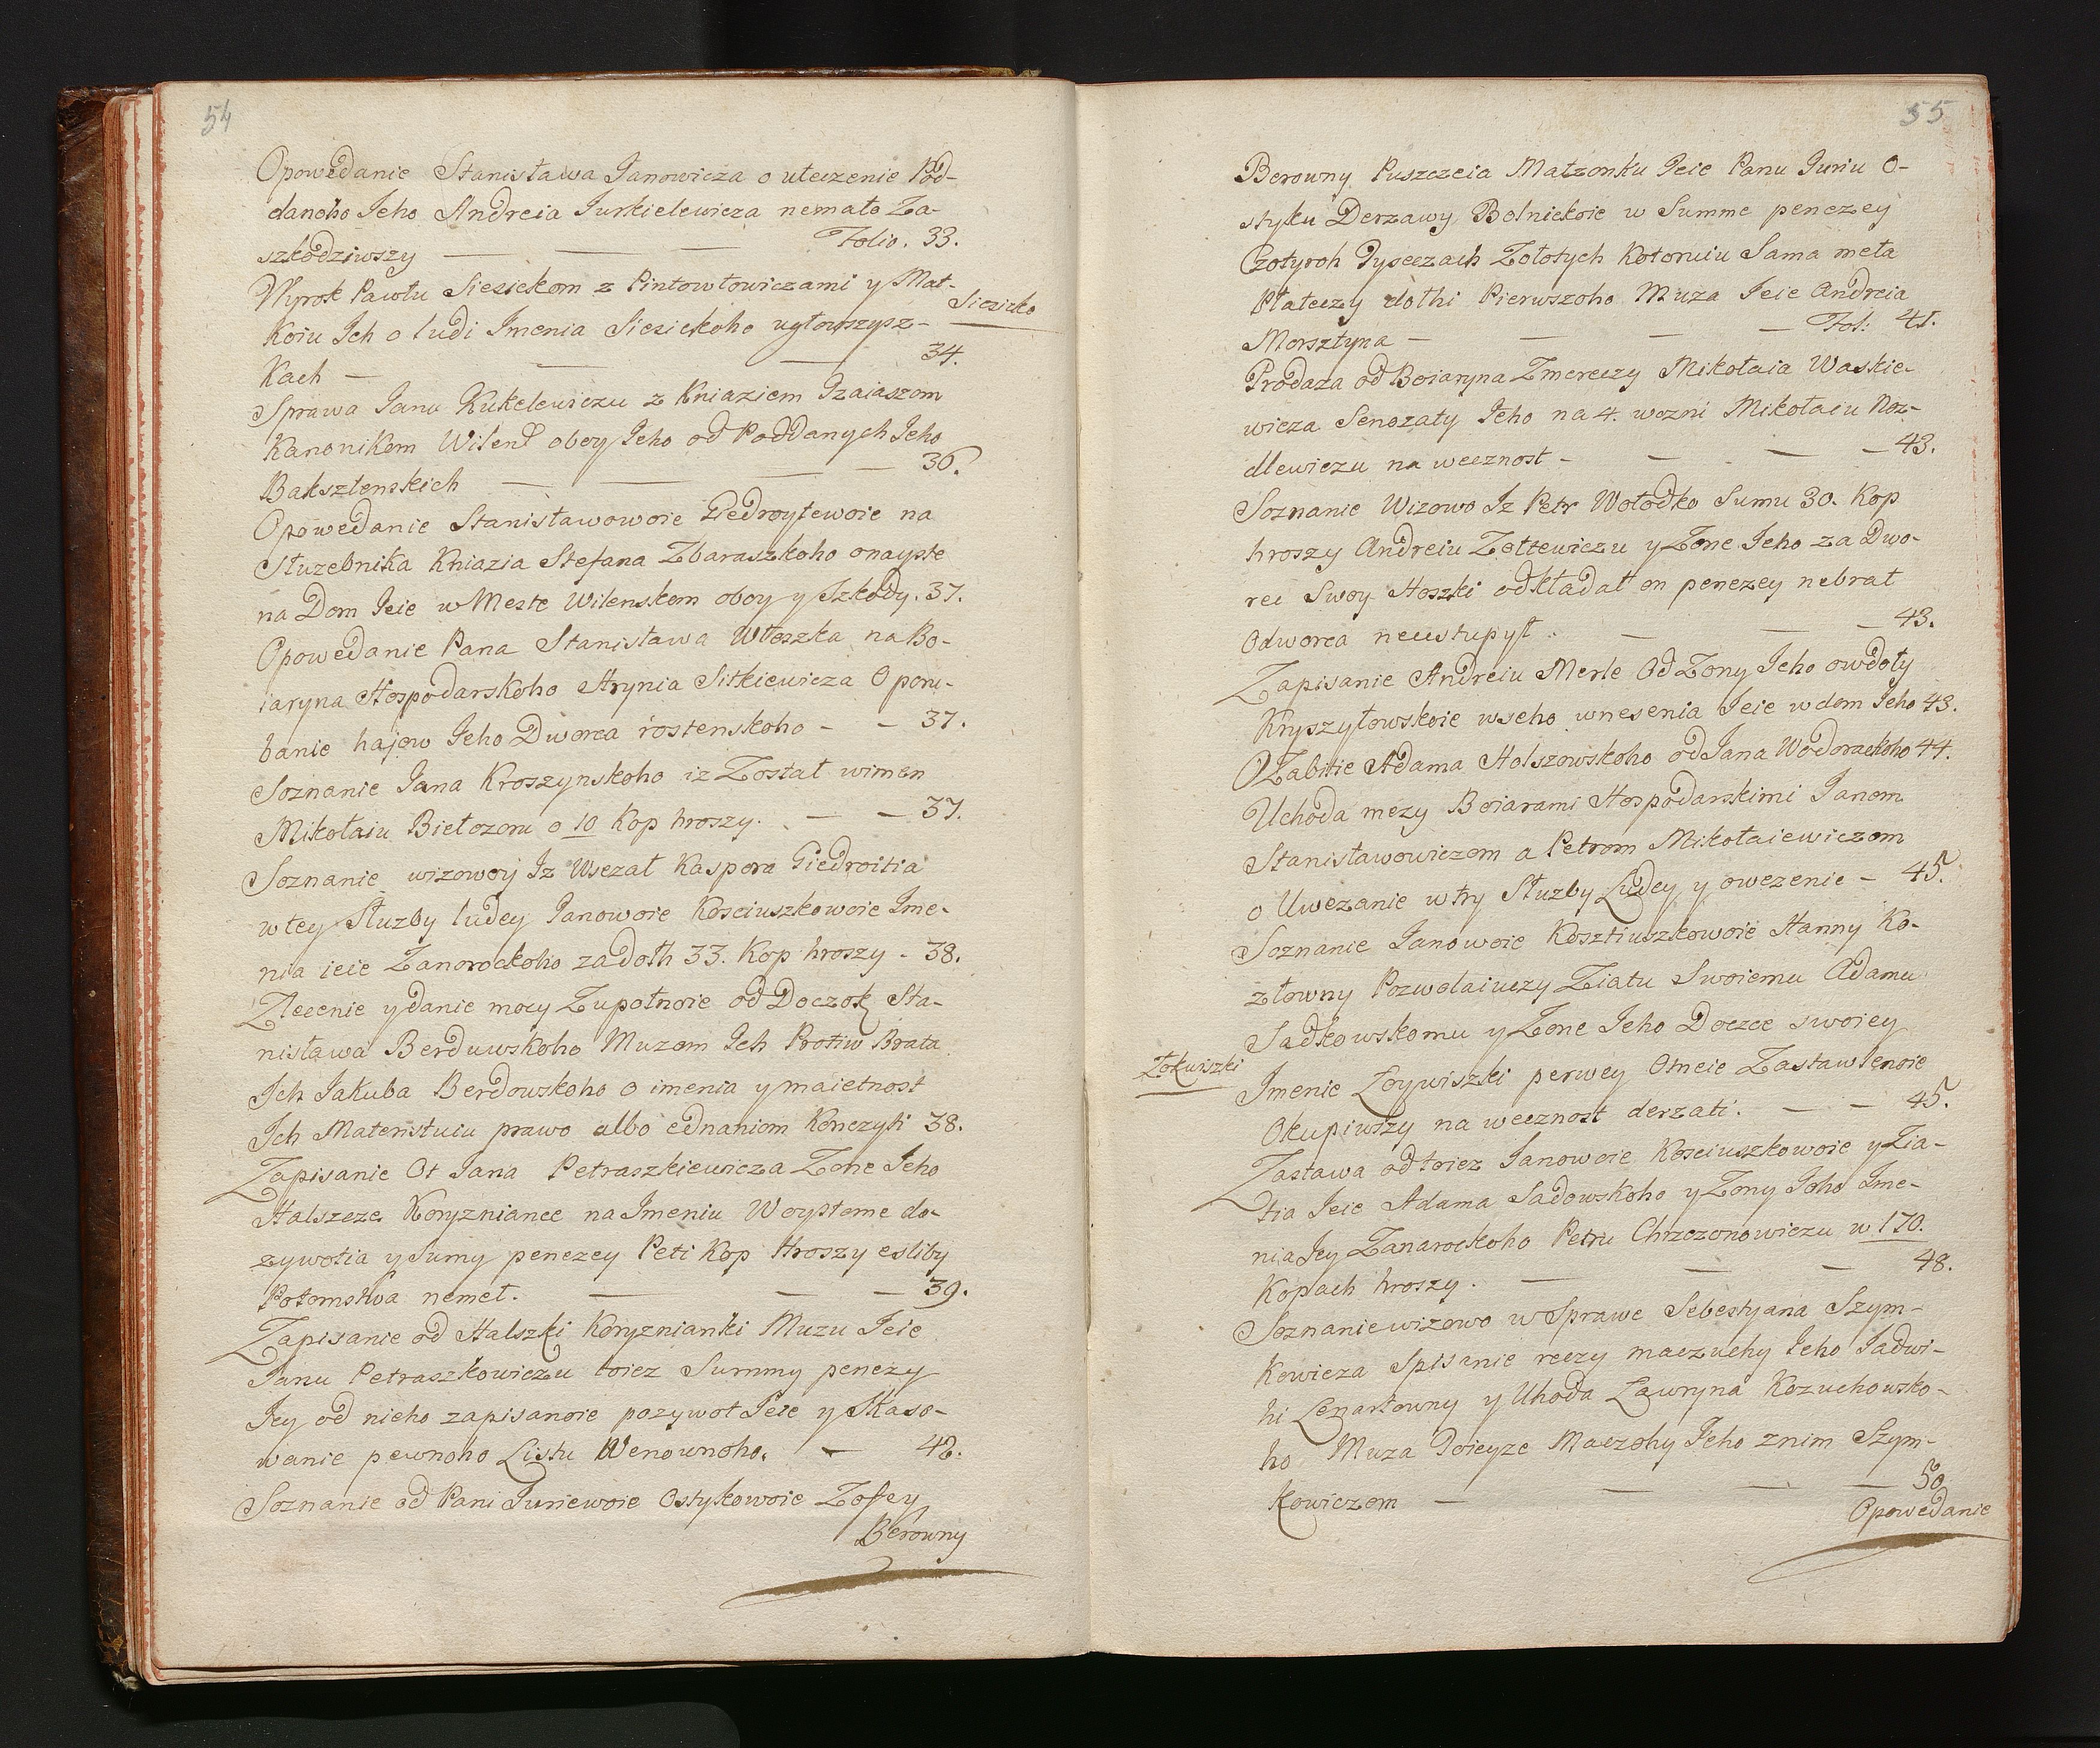 54
Opowedanie Stanisława Janowicza o uteczenie Pod-
danoho Jeho Andreia Jurkielewicza nemało Za-
szkodziwszy — — — Folio. 33.
Wyrok Pawłu Siesickom z Pintowtowiczami y Mat-
Siesicko
Koiu Jch o ludi Jmenia Siesickoho
Kach — — — 34.
Sprawa Janu Kukelewiczu z Kniaziem Izaiaszom
Kanonikom Wilens oboy Jeho od Poddanych Jeho
Baksztenskich — — — 36.
Opowedanie Stanisławowoie Giedroytewoie na
Służebnika Kniazia Stefana Zbaraszkoho onayste
na Dom Jeie w Meste Wilenskom oboy y Szkody. 37.
Opowedanie Pana Stanisława Włoszka na Bo-
iaryna Hospodarskoho Hrynia Sitkiewicza O poru-
banie hajow Jeho Dworca rostenskoho — — 37.
Soznanie Jana Kroszynskoho iz Został wimen
Mikołaiu Biełozoru o 10 Kop hroszy. — — 37.
Soznanie wizowoy Jz Uwezał Kaspora Giedroitia
w tey Służby ludey Janowoie Kosciuszkowoie Jme-
nia ieie Zanorockoho za dołh 33. Kop hroszy - 38.
Zlecenie y danie mocy Zupołnoie od Doczok Sta-
nisława Berduwskoho Muzom Jch Protiw Brata
Jch Jakuba Berdowskoho o imenia y maietnost
Jch Materistuiu prawo albo ednaniom Konczyti 38.
Zapisanie Ot Jana Petraszkiewicza Zone Jeho
Halszcze Koryzniance na Jmeniu Woysteme do-
zywotia y Sumy penezey Peti Kop Hroszy esliby
Potomstwa nemeł. — — — 39.
Zapisanie od Halszki Koryznianki Muzu Jeie
Janu Petraszkowiczu toiez Summy penezy
Jey od nieho zapisanoie pozywot Jeie y Skaso-
wanie pewnoho Listu Wenownoho. — 42.
Soznanie od Pani Juriewoie Ostykowoie Zofey
Berowny
55
Berowny Puszczeia Małzonku Jeie Panu Juriu O-
styku Derzawy Bolnickoie w Summe penezey
Czotyroh Tyseczach Zołotych Kotoruiu Sama meła
Płateczy dołhi Pierwszoho Muza Jeie Andreia
Morsztyna — — — Fol: 41.
Prodaza od Boiaryna Zmereczy Mikołaia Waskie-
wicza Senozaty Jeho na 4. wozni Mikołaiu Noz-
dlewiczu na wecznost — — — 43.
Soznanie Wizowo Jz Petr Wołodko Sumu 30. Kop
hroszy Andreiu Zołtewiczu y Zone Jeho za Dwo-
rec Swoy Hoszki odkładał on penezey nebrał
Odworca neustupył. — — — 43.
Zapisanie Andreiu Merle Od Zony Jeho owdoty
Kryszyłowskoie wseho wnesenia Jeie w dom Jeho 43.
O Zabitie Adama Holszowskoho od Jana Wodorackoho 44.
Uchoda mezy Boiarami Hospodarskimi Janom
Stanisławowiczom a Petrom Mikołaiewiczom
o Uwezanie w try Służby Ludey y owezenie — 45.
Soznanie Janowoie Kosztiuszkowoie Hanny Ko-
złowny Pozwolaiuczy Ziatu Swoiemu Adamu
Sadkowskomu y Zone Jeho Doczce swoiey
Łokuiszki
Jmenie Łoywiszki perwey Otneie Zastawlenoie
Okupiwszy na wecznost derzati. — — 45.
Zastawa od toiez Janowoie Kosciuszkowoie y Zia-
tia Jeie Adama Sadowskoho y Zony Joho Jme-
nia Jey Zanarockoho Petru Chrzczonowiczu w 170.
Kopach hroszy. — — — 48.
Soznanie wizowo w Sprawe Sebestyana Szym-
kowicza Spisanie reczy maczuchy Jeho Jadwi-
hi Lenartowny y Uhoda Ławryna Kozuchowsko-
ho Muza Toieyze Maczohy Jeho znim Szym-
kowiczom — — — 50
Opowedanie